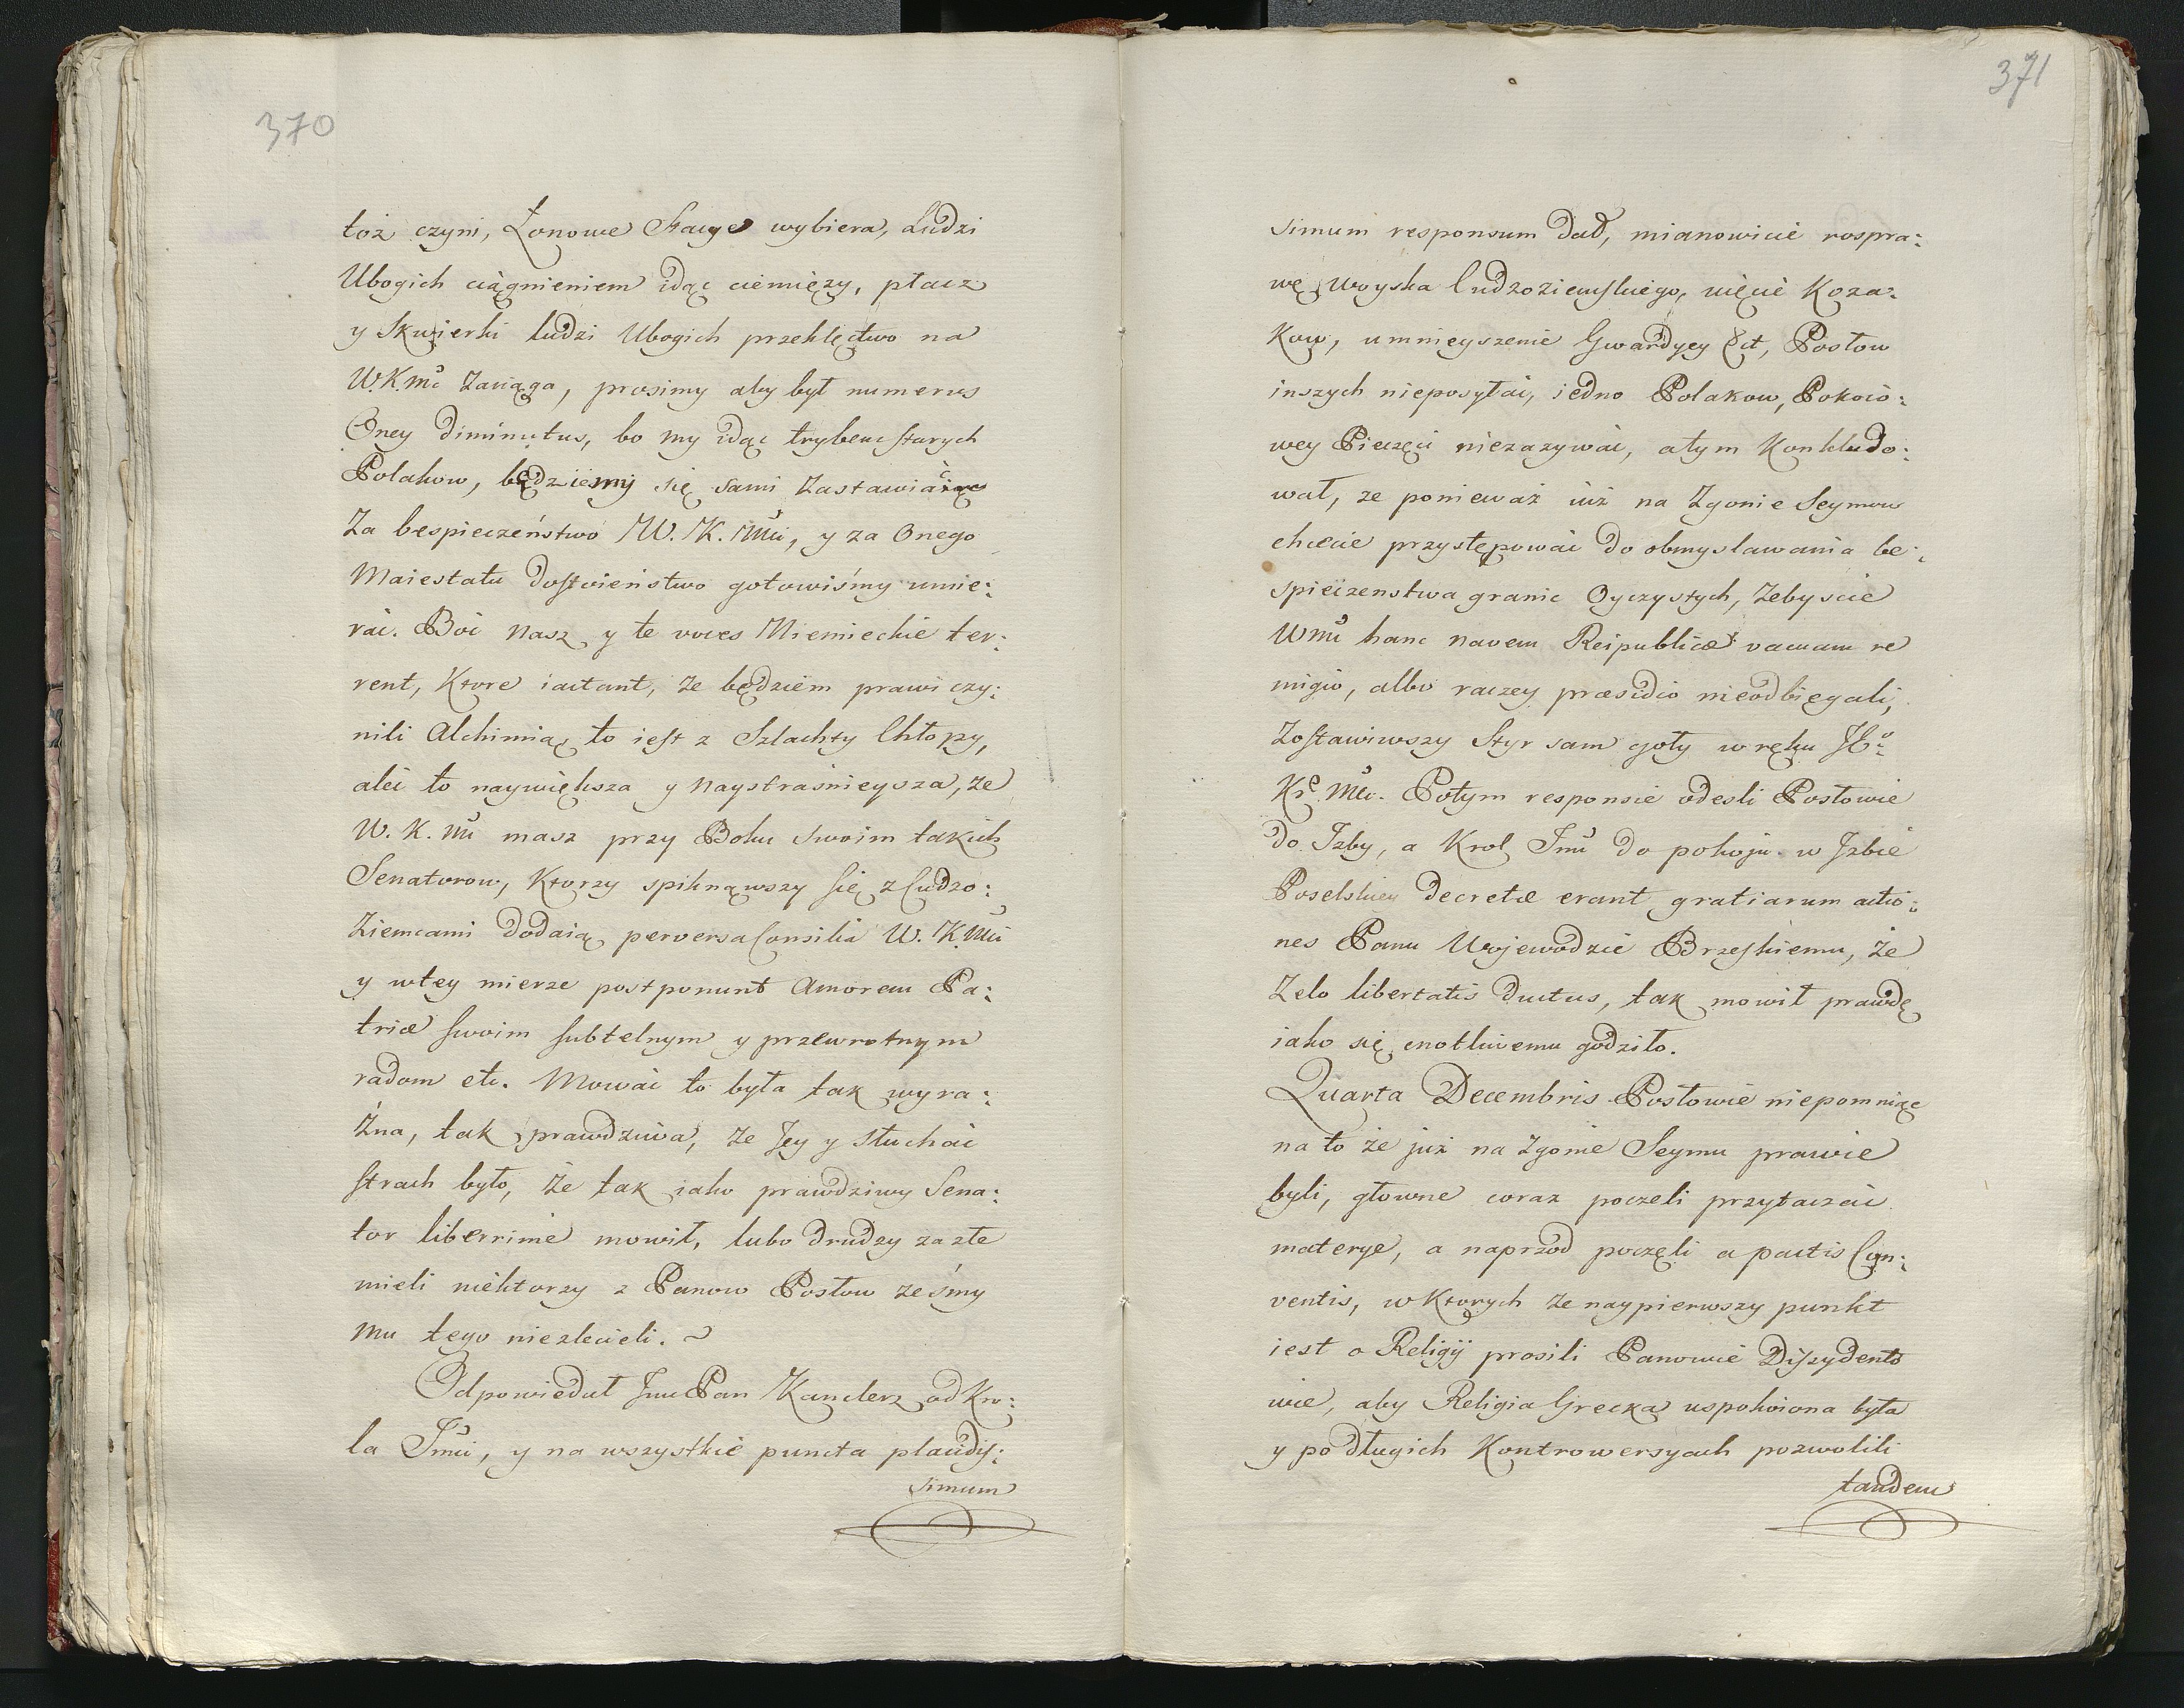 370
toż czyni, Łonowe Stacye wybiera, Ludzi
Ubogich ciągnieniem idąc ciemięży, płacz
y Skwierki ludzi Ubogich przeklęctwo na
W.K.Mć zaciąga, prosimy aby był numerus
Oney diminutus, bo my idąc trybem starych
Polakow, będziesmy się sami zastawiać
Za bespieczeństwo W. K. Mći, y za Onego
Maiestatu dostoieństwo gotowiśmy umie:
rać. Boć nasz y te voces Niemieckie ter:
rent, Ktore iactant, że będziem prawi czy:
nili Alchimią, to iest z Szlachty Chłopy,
aleć to naywiększa y naystraśnieysza, że
W. K. Mć masz przy Boku swoim takich
Senatorow, Ktorzy spiknąwszy się z Cudzo:
ziemcami dodaią perversa Consilia W. K. Mći
y w tey mierze postponunt Amorem Pa:
triæ swoim subtelnym y przewrotnym
radom etc. Mować to była tak wyra:
źna, tak prawdziwa, że Jey y słuchać
strach było, że tak iako prawdziwy Sena:
tor liberrime mowił, lubo drudzy za złe
mieli niektorzy z Panow Posłow żeśmy
mu tego niezlecieli.
Odpowiedał Jmć Pan Kanclerz od Kro:
la Jmći, y na wszystkie puncta plaudis:
simum
371
simum responsum dał, mianowicie rospra:
wę woyska Cudzoziemskiego, zięcie Koza:
kow, umnieyszenie Gwardyey &ct, Posłow
inszych nieposyłać, iedno Polakow, Pokoio:
wey Pieczęci niezazywać, atym Konkludo:
wał, ze ponieważ iuż na Zgonie Seymu
chcecie przystępowac do obmyslawania be:
spieczenstwa granic Oyczystych, żebyscie
Wmć hanc navem Reipublicæ vacuam re
migio, albo raczey præsidio nieodbiegali,
Zostawiwszy Styr sam goły w ręku JE:
Kr. Mći. Potym responsie odesli Posłowie
do Izby, a Krol Jmć do pokoju. w Izbie
Poselskiey decretæ erant gratiarum actio:
nes Panu Wojewodzie Brzeskiemu, że
Zelo libertatis ductus, tak mowił prawdę
iako się cnotliwemu godziło.
Quarta Decembris Posłowie niepomniąc
na to że już na zgonie Seymu prawie
byli, głowne coraz poczeli przytaczać
materye, a naprzod poczęli a pactis Con:
ventis, w Ktorych że naypierwszy punkt
iest o Religij prosili Panowie Dissydento
wie, aby Religia Grecka uspokoiona była
y po długich Kontrowersyach pozwolili
tandem